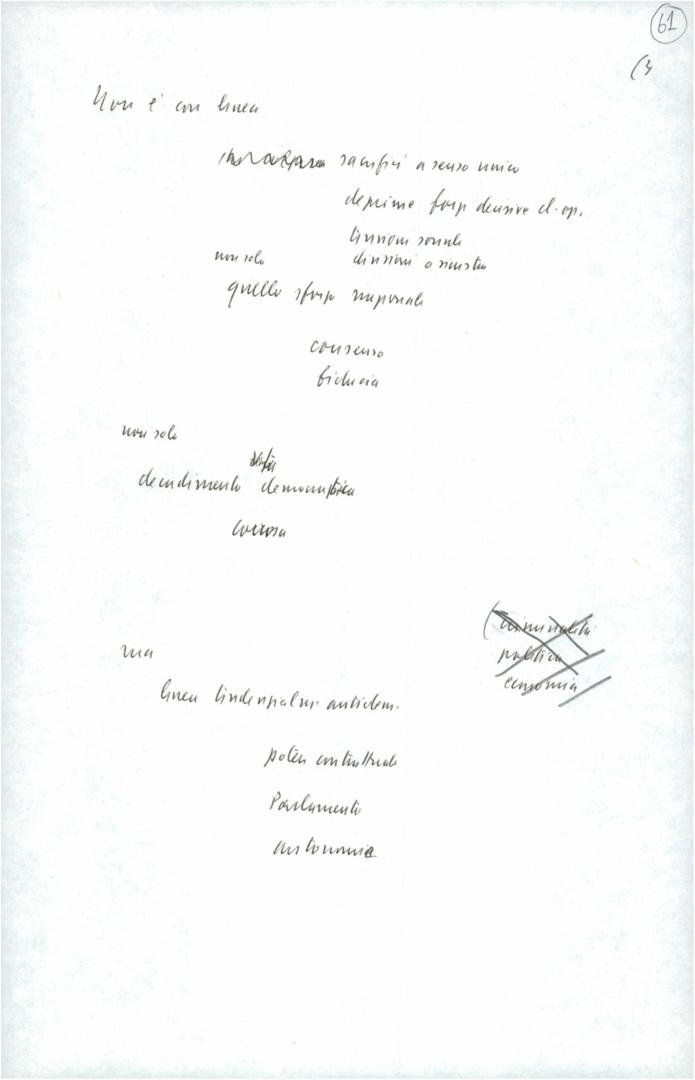 61
(3
Non è con linea
sacrifici a senso unico
deprime forze decisive cl. op.
tensioni sociali
non solo divisioni a sinistra
quello sforzo nazionale
consenso
fiducia
non solo
vita
decadimento democratica
corrosa
(criminalità
politica
economia
ma
linea tendenzialm. antidem.
potere contrattuale
Parlamento
autonomie